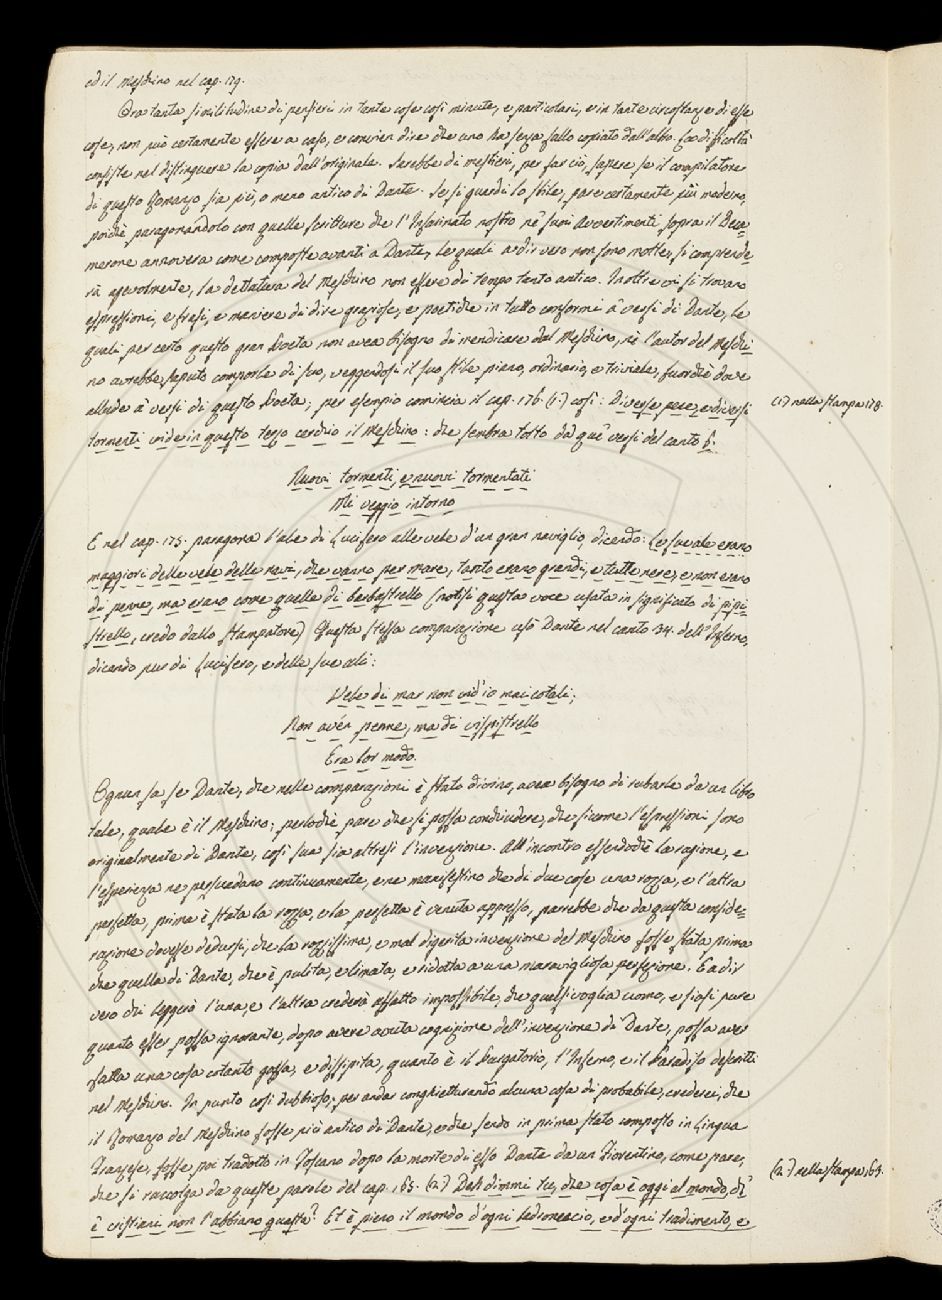 ed il Meschino nel cap. 179.
Ora tanta similitudine di pensieri in tante cose così minute, e particolari, e in tante circostanze di esse
cose, non può certamente essere a caso, e convien dire che uno ha senza fallo copiato dall'altro. La difficoltà
consiste nel distinguere la copia dall'originale. Sarebbe di mestieri, per far ciò, sapere se il compilatore
di questo Romanzo sia più, o meno antico di Dante. Se si guardi lo stile, pare certamente più moderno,
poichè paragonandolo con quelle scritture che l'Infarinato nostro ne' suoi Avvertimenti sopra il Deca=
merone annovera come composte avanti a Dante, le quali a dir vero non sono molte, si comprende=
rà agevolmente, la dettatura del Meschino non essere di tempo tanto antico. Inoltre vi si trovano
espressioni, e frasi, e maniere di dire graziose, e poetiche in tutto conformi a' versi di Dante, le
quali per certo questo gran Poeta non avea bisogno di mendicare dal Meschino, nè l'autor del Meschi=
no avrebbe saputo comporle di suo, veggendosi il suo stile piano, ordinario, e triviale, fuorchè dove
allude a' versi di questo Poeta; per esempio comincia il cap. 176. (1.) così: Diverse pene, e diversi
tormenti vide in questo terzo cerchio il Meschino: che sembra tolto da que' versi del canto 6.
Nuovi tormenti, e nuovi tormentati
Mi veggio intorno
E nel cap. 175. paragona l'ale di Lucifero alle vele d'un gran naviglio, dicendo: Le sue ale erano
maggiori delle vele delle navi, che vanno per mare, tanto erano grandi, e tutte nere, e non erano
di penne, ma erano come quelle di barbastrello (notisi questa voce usata in significato di pipi=
strello, credo dallo stampatore) Questa stessa comparazione usò Dante nel canto 34. dell'Inferno,
dicendo pur di Lucifero, e delle sue ali:
Vele di mar non vid'io mai cotali;
Non avén penne, ma di vispistrello
Era lor modo.
Ognun sa se Dante, che nelle comparazioni è stato divino, avea bisogno di rubarle da un libro
tale, quale è il Meschino; perlochè pare che si possa conchiudere, che siccome l'espressioni sono
originalmente di Dante, così sua sia altresì l'invenzione. All'incontro essendochè la ragione, e
l'esperienza ne persuadano continuamente, e ne manifestino che di due cose una rozza, e l'altra
perfetta, prima è stata la rozza, e la perfetta è venuta appresso, parrebbe che da questa conside=
razione dovesse dedursi, che la rozzissima, e mal digerita invenzione del Meschino fosse stata prima
che quella di Dante, che è pulita, e limata, e ridotta a una maravigliosa perfezione. E a dir
vero chi leggerà l'una, e l'altra crederà affatto impossibile, che qualsivoglia uomo, e siasi pure
quanto esser possa ignorante, dopo avere avuta cognizione dell'invenzione di Dante, possa aver
fatta una cosa cotanto goffa, e dissipita, quanto è il Purgatorio, l'Inferno, e il Paradiso descritti
nel Meschino. In punto così dubbioso, per andar conghietturando alcuna cosa di probabile, crederei, che
il Romanzo del Meschino fosse più antico di Dante, e che sendo in prima stato composto in Lingua
Franzese, fosse poi tradotto in Toscano dopo la morte di esso Dante da un Fiorentino, come pare,
che si raccolga da queste parole del cap. 163. (2.) Deh dimmi tu, che cosa è oggi al mondo, ch'
è cristiani non l'abbiano guasta? Et è pieno il mondo d'ogni ladroneccio, e d'ogni tradimento, e
(1.) nella stampa 178.
(2.) nella stampa 163.